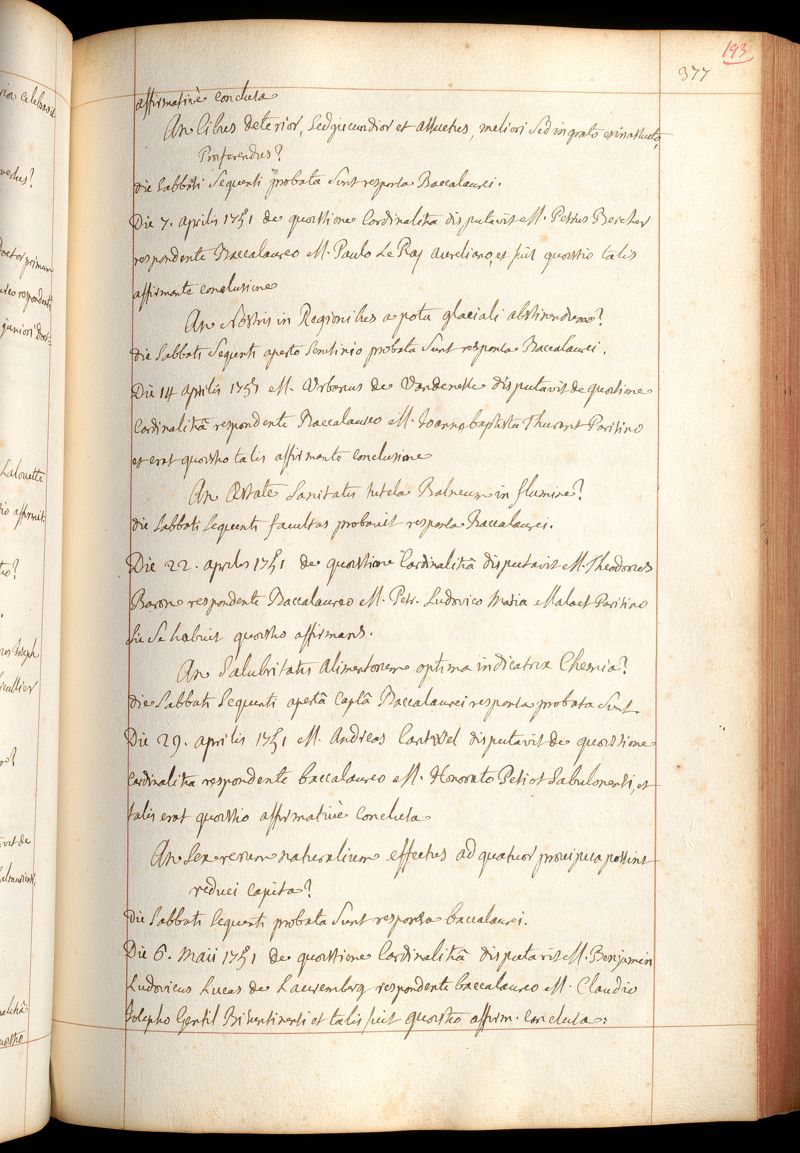 193
377
affirmativè conclusa
An Cibus deterior, Sed jucundior et assuetus, meliori Sed ingrato
Praeferendus?
die Sabbati Sequenti probata Sunt responsa Baccalaurei.
Die 7. aprilis 1751 de quaestione Cardinalitiâ disputavit M. Petrus Bercher
respondente Baccalaureo M. Paulo Le Ray aureliano, et fuit quaestio talis
affirmante conclusione
An Nostris in Regionibus a potu glaciali abstinendum?
die Sabbati Sequenti aperto Scrutinio probata Sunt responsa Baccalaurei.
Die 14 aprilis 1751 M. Urbanus de Vandenesse disputavit de quaestione
Cardinalitiâ respondente Baccalaureo M. Joanne baptista Thurant Parisino
et erat quaestio talis affirmante conclusione
An Æstate Sanitatis tutela Balneum in flumine?
die Sabbati Sequenti facultas probavit responsa Baccalaurei.
Die 22. aprilis 1751 de quaestione Cardinalitiâ disputavit M. Theodorus
Baron respondente Baccalaureo M. Petr. Ludovico Maria Maloet Parisino
Sic Se habuit quaestio affirmans.
An Salubritatis alimentorum optima indicatrix Chemia?
die Sabbati Sequenti apertâ Capsâ Baccalaurei responsa probata Sunt.
Die 29. aprilis 1751 M. Andreas Cantwel disputavit de quaestione
Cardinalitia respondente baccalaureo M. Honorato Petiot Sabulonensi, et
talis erat quaestio affirmativè conclusa
An Sex rerum naturalium effectus ad quatuor praecipua possint
reduci capita?
die Sabbati Sequenti probata Sunt responsa baccalaurei.
Die 6. Maii 1751 de quaestione Cardinalitiâ disputavit M. Benjamin
Ludovicus Lucas de Lauremberg respondente baccalaureo M. Claudio
Josepho Gentil Bisuntinensi et talis fuit quaestio affirm. conclusa: